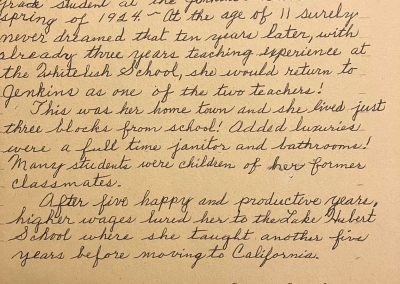 grade student at the
spring of 1924. - At the age of 11 surely
never dreamed that ten years later, with
already three years teaching experience at
the Whitefish School, she would return to
Jenkins as one of the two teachers!
This was her home town and she lived just
three blocks from school! Added luxuries
were a full time janitor and bathrooms!
Many students were children of her former
classmates.
After five happy and productive years,
higher wages lured her to the Lake Hubert
School where she taught another five
years before moving to California.